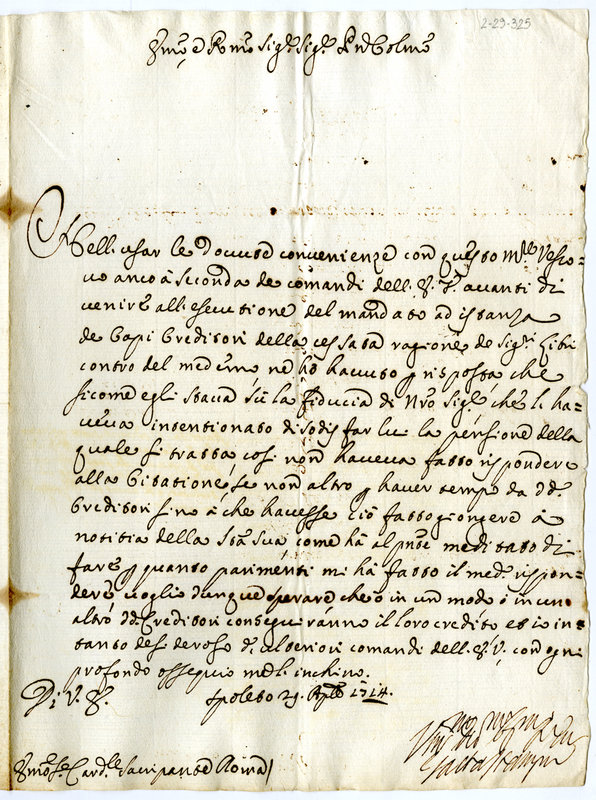 2-29-325
Em̃o e Rm̃o Sig.r Sig.r Pñ Colmo
Nell'usar le dovute convenienze con questo Mr̃e Vesco=
vo anco à seconda de comandi dell'E. V. avanti di
venire all'esecutione del mandato ad istanza
de Capi Creditori della cessata ragione de Sig.ri Cibi
contro del medemo ne hò havuto p risposta che
sicome egli stava sù la fiducia di Nr̃o Sig.re che li ha=
veva intentionato di sodisfar lui la pensione della
quale si tratta, così non haveva fatto rispondere
alla Citatione, se non altro p haver tempo da dd.
Creditori sino à che havesse ciò fatto giongere à
notitia della Stà Sua come hà al pñte meditato di
fare, p quanto parimenti mi hà fatto il med.o rispon=
dere, voglio dunque sperare che ò in un modo ò in un
altro dd. Creditori conseguiranno il loro credito et io in=
tanto desideroso d' ulteriori comandi dell'E. V. con ogni
profondo ossequio me l'inchino.
Di V. E. Spoleto 29. 1714.
Em̃o Sr̃e Card.le Sacripante Roma